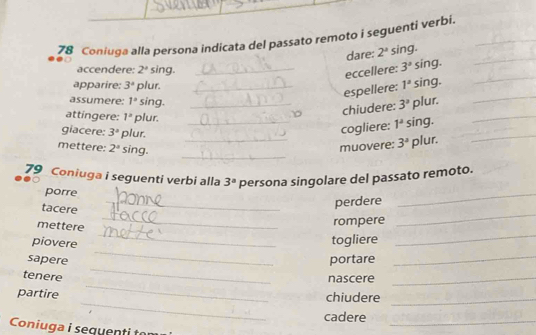 78 Coniuga alla persona indicata del passato remoto i seguenti verbi.
accendere: 2ª sing.
dare: 2ª sing.
apparire: 3ª plur.
eccellere: 3ª sing.
assumere: 1ª sing.
espellere: 1ª sing.
attingere: 1ª plur.
chiudere: 3ª plur.
giacere: 3ª plur.
cogliere: 1ª sing.
mettere: 2ª sing.
muovere: 3ª plur.
79 Coniuga i seguenti verbi alla 3ª persona singolare del passato remoto.
porre ponne
perdere
tacere tacce
rompere
mettere
togliere
piovere
portare
sapere
nascere
tenere
chiudere
partire
cadere
Coniuga i seguenti